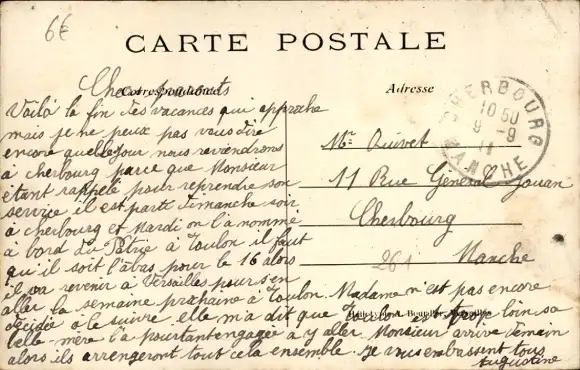 6€
CARTE POSTALE
Correspondance
Adresse
Chers parents
Voilà la fin des vacances qui approche
mais je ne peux pas vous dire
encore quelle jour nous reviendrons
à cherbourg parce que Monsieur
étant rappelé pour reprendre son
service il est parti dimanche soir
à cherbourg et Mardi on l'a nommé
à bord du Patrie à Toulon il faut
qu'il soit l'àbas pour le 16 alors
il va revenir à Versailles pour s'en
aller la semaine prochaine à Toulon. Madame n'est pas encore
décidée à le suivre elle m'a dit que Toulon est trop loin sa
belle-mère l'a pourtant engagée à y aller Monsieur arrive demain
alors ils arrengeront tout cela ensemble. Je vous embrasse tous
Augustine
CHERBOURG
10 50
9 - 9
11
MANCHE
Mr Quivet
11 Rue Général Jouan
Cherbourg
Manche
261